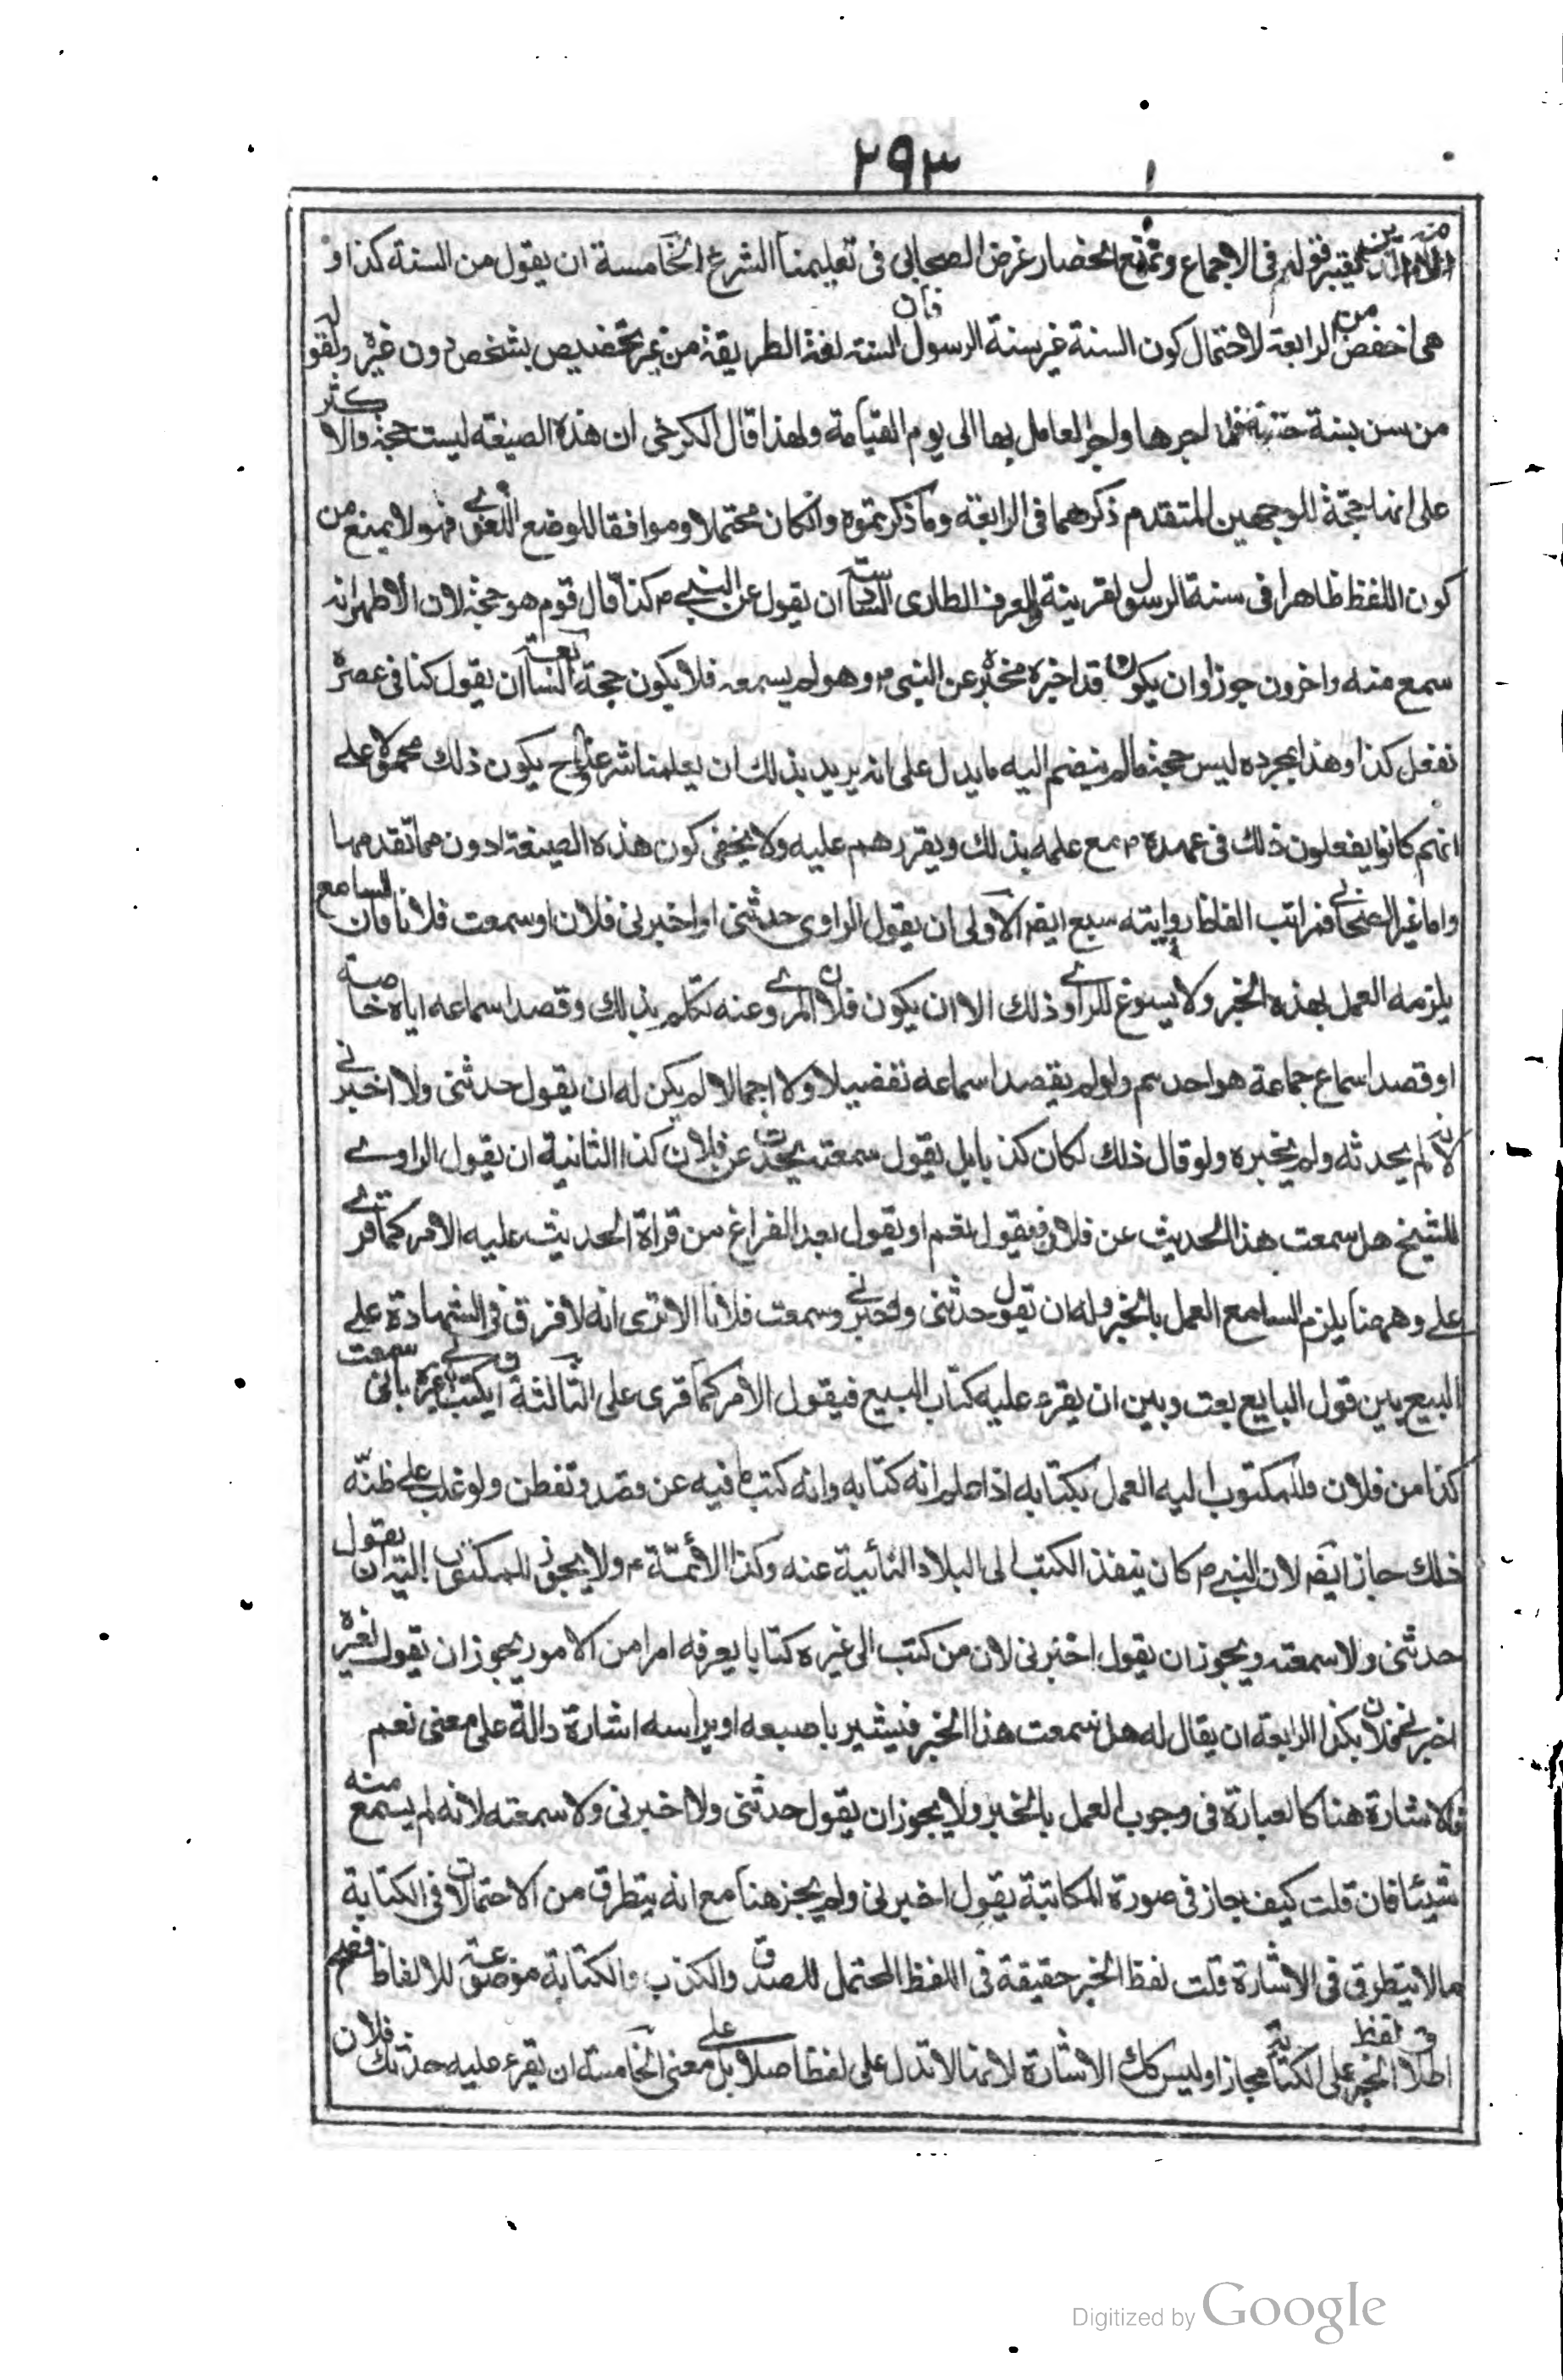 ٢٩٣
فقولهم فى الاجماع ونمنع انحصار غرض الصحابى فى تعليمنا الشرع الخامسة ان يقول من السنة كذا و
هى اخفض من الرابعة لاحتمال كون السنة غير سنة الرسول فان السنة لغة الطريقة من غير تخصيص بشخص دون غيره ولقوله
من سن سنة حسنة فله اجرها واجر العامل بها الى يوم القيامة ولهذا قال الكرخى ان هذه الصيغة ليست حجة والاكثر
على انها حجة للوجهين المتقدم ذكرهما فى الرابعة وما ذكرتموه وان كان محتملا وموافقا للوضع اللغوى فهو لا يمنع من
كون اللفظ ظاهرا فى سنة الرسول لقرينة العرف الطارى السادسة ان يقول عن النبى م كذا قال قوم هو حجة لان الأظهر انه
سمع منه واخرون جوزوا ان يكون قد اخبره مخبر عن النبى م وهو لم يسمعه فلا يكون حجة السابعة ان يقول كنا فى عصره
نفعل كذا وهذا بمجرده ليس حجة ما لم ينضم اليه ما يدل على انه يريد بذلك ان يعلمنا شرعا وح يكون ذلك محمولا على
انهم كانوا يفعلون ذلك فى عهده م مع علمه بذلك ويقررهم عليه ولا يخفى كون هذه الصيغة ادون مما تقدمها
واما غير الصحابى فمراتب الفاظ روايته سبع ايضا الأولى ان يقول الراوى حدثنى او اخبرنى فلان او سمعت فلانا فان السامع
يلزمه العمل بهذه الخبر ولا يسوغ للراوى ذلك الا ان يكون فلان المروى عنه تكلم بذلك وقصد اسماعه اياه خاصة
او قصد اسماع جماعة هو احدهم ولو لم يقصد اسماعه تفصيلا ولا اجمالا لم يكن له ان يقول حدثنى ولا اخبرنى
لانه لم يحدثه ولم يخبره ولو قال ذلك لكان كذبا بل يقول سمعته يحدث عن فلان كذا الثانية ان يقول الراوى
للشيخ هل سمعت هذا الحديث عن فلان فيقول نعم او يقول بعد الفراغ من قراة الحديث عليه الامر كما قرى
على وههنا يلزم السامع العمل بالخبر وله ان يقول حدثنى واخبرنى وسمعت فلانا الا ترى انه لا فرق فى الشهادة على
البيع بين قول البايع بعت وبين ان يقرء عليه كتاب البيع فيقول الأمر كما قرى على الثالثة ان يكتب الى غيره بانى سمعت
كذا من فلان فللمكتوب اليه العمل بكتابه اذا علم انه كتابه وانه كتب ما فيه عن قصد وتفطن ولو غلب على ظنّه
ذلك جاز ايضا لان النبى م كان ينفذ الكتب الى البلاد النائية عنه وكذا الأئمّة ع ولا يجوز للمكتوب اليه ان يقول
حدثنى ولا سمعته ويجوز ان يقول اخبرنى لان من كتب الى غيره كتابا يعرفه امرا من الامور يجوز ان يقول لغيره
اخبرنى فلان بكذا الرابعة ان يقال له هل سمعت هذا الخبر فيشير باصبعه او براسه اشارة دالة على معنى نعم
فالاشارة هنا كالعبارة فى وجوب العمل بالخبر ولا يجوز ان يقول حدثنى ولا اخبرنى ولا سمعته لانه لم يسمع منه
شيئا فان قلت كيف جاز فى صورة المكاتبة يقول اخبرنى ولم يجز هنا مع انه يتطرق من الاحتمالات فى الكتابة
ما لا يتطرق فى الاشارة قلت لفظ الخبر حقيقة فى اللفظ المحتمل للصدق والكذب والكتابة موضوعة للالفاظ فصح
اطلاق لفظ الخبر على الكتابة مجازا وليس كك الاشارة لانها لا تدل على لفظ اصلا بل على معنى الخامسة ان يقرء عليه حدثك فلان
Digitized by Google